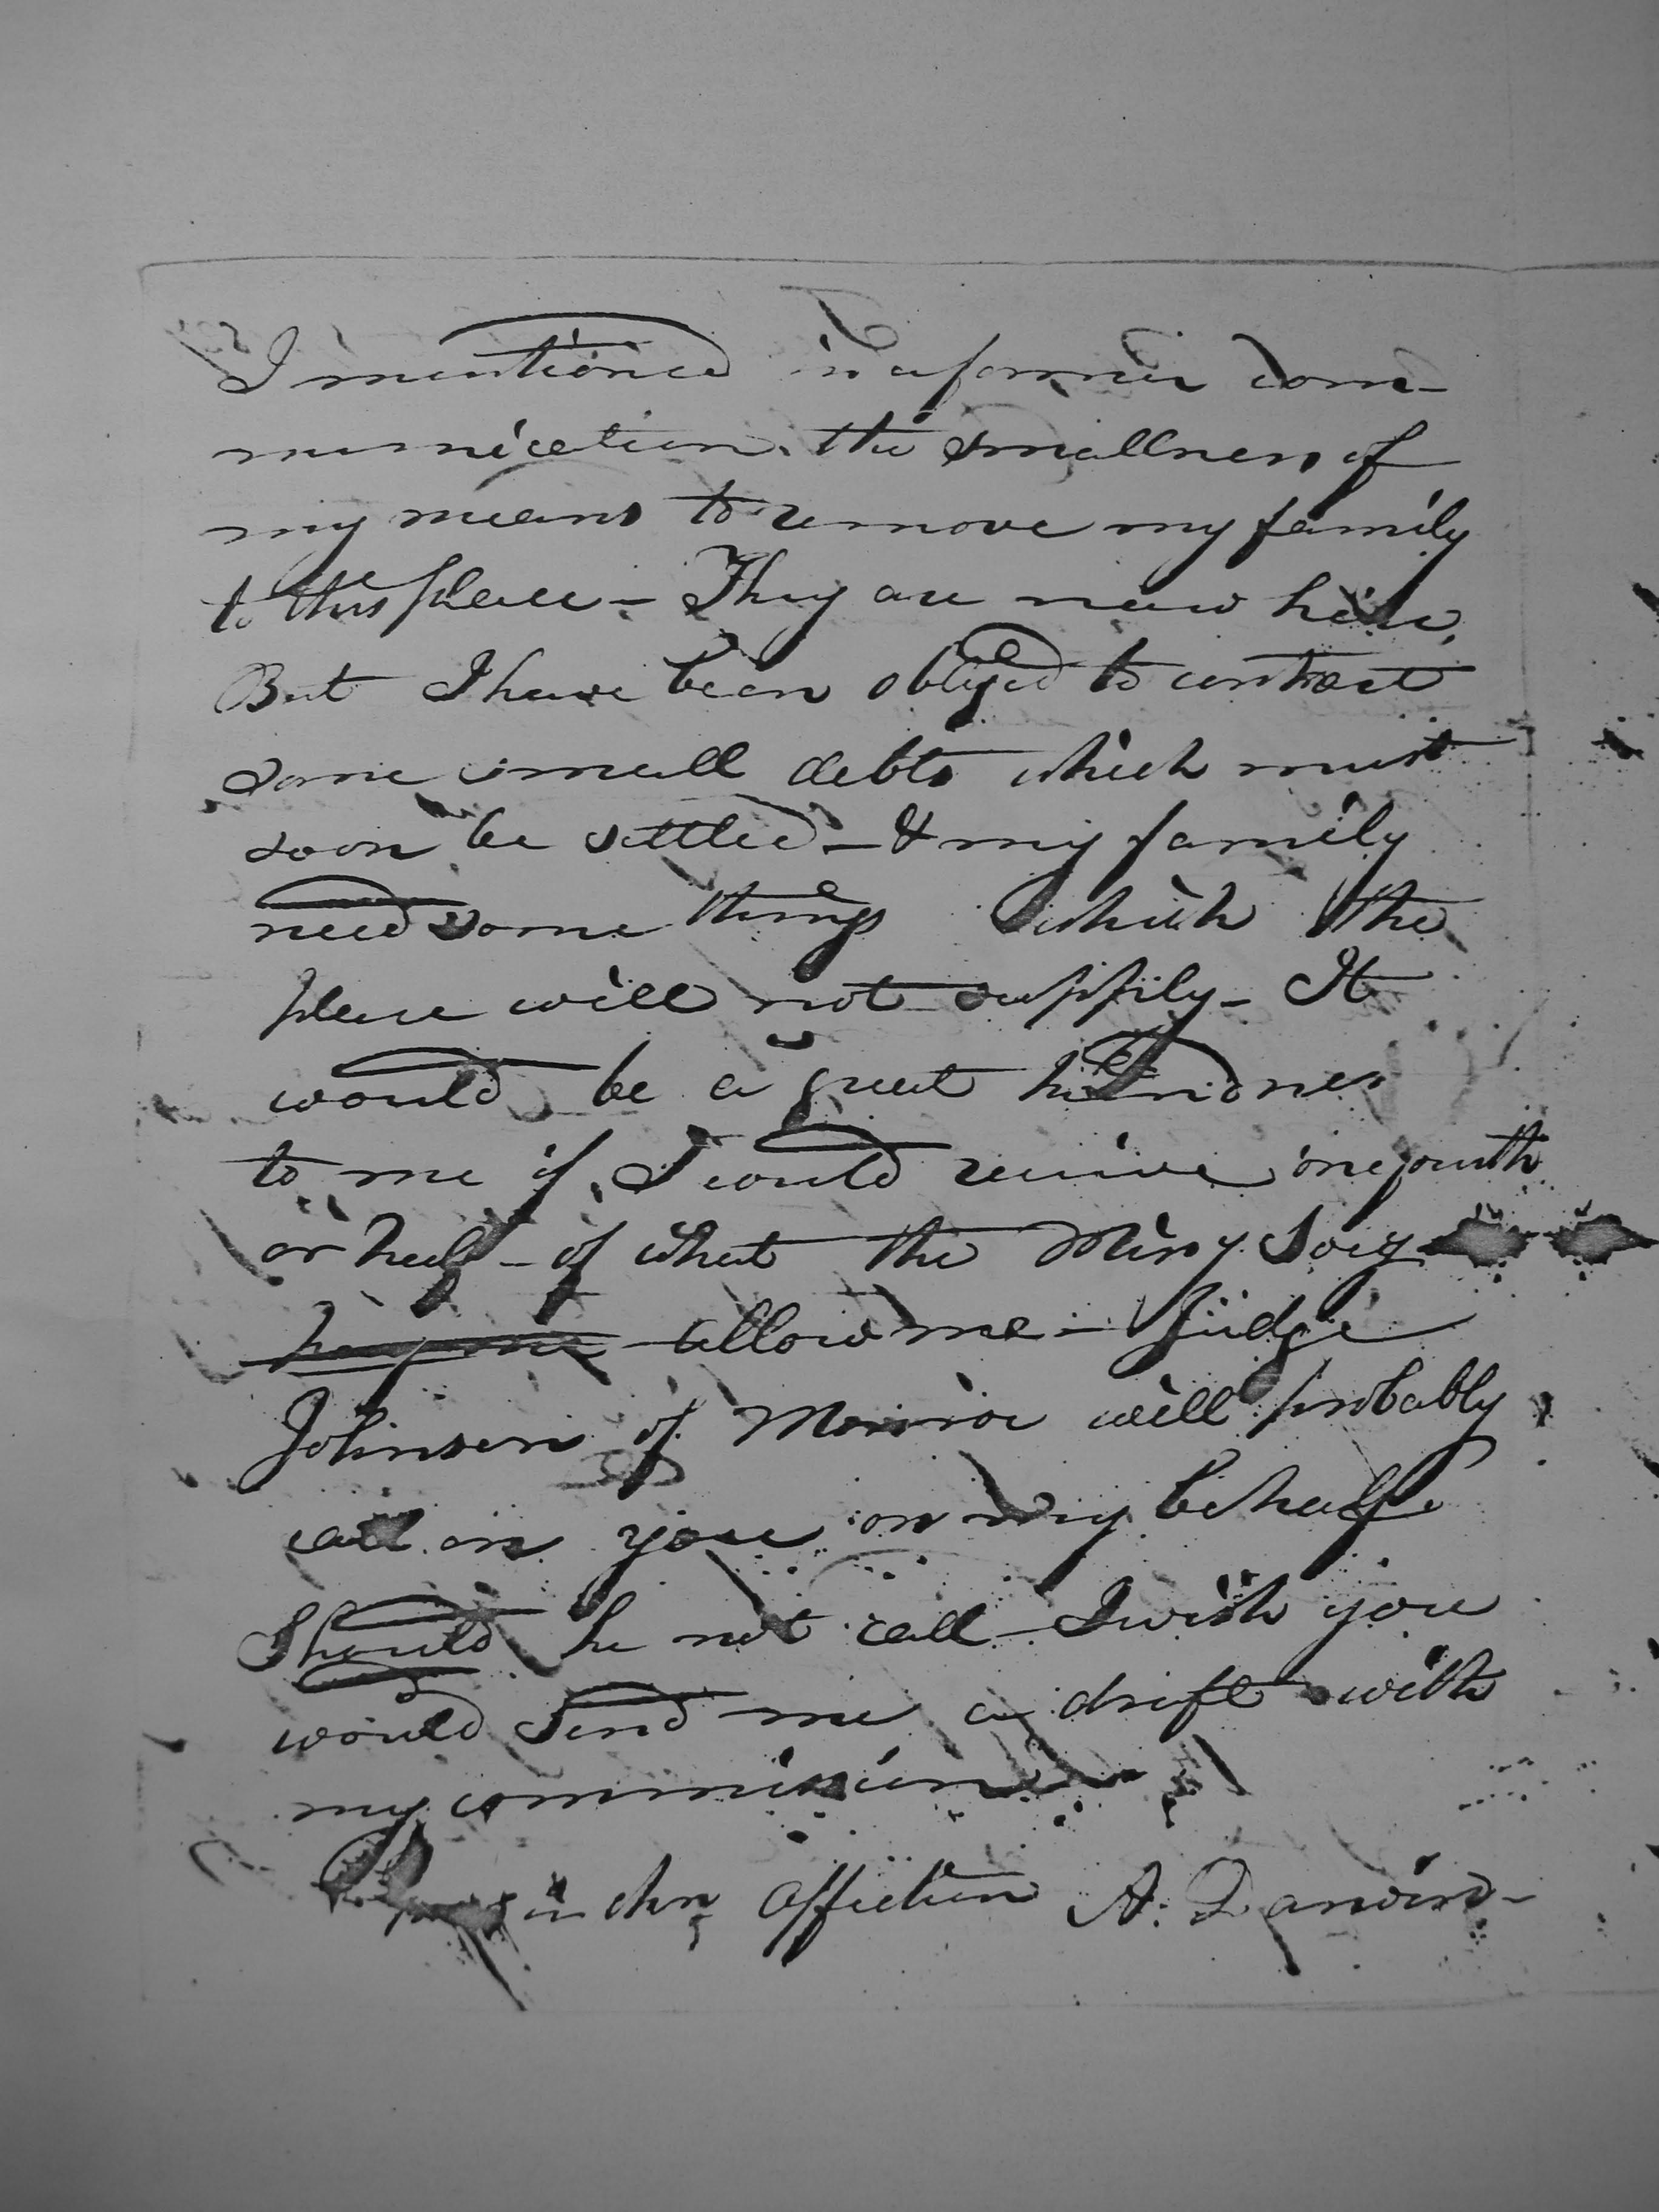 I mentioned in a former com-
munication, the smallness of
my means to remove my family
to this place - They are now here,
But I have been obliged to contract
some small debts which must
soon be settled - & my family
need some things which the
place will not supply - It
would be a great kindness
to me if I could receive one fourth
or half - of what the Missy Socy
allow me - Judge
Johnson of Monroe will probably
call on you on my behalf
Should he not call - I wish you
would send me a draft with
my commission
in chn affection A.